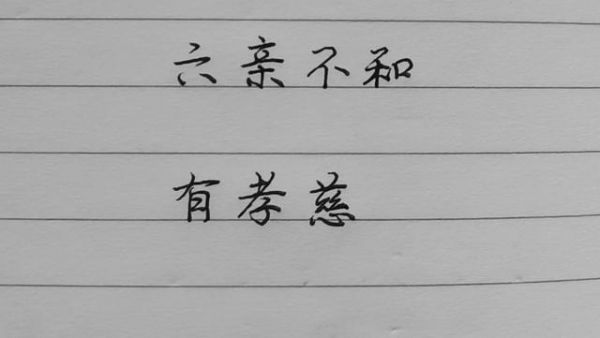 六亲不和
有孝慈